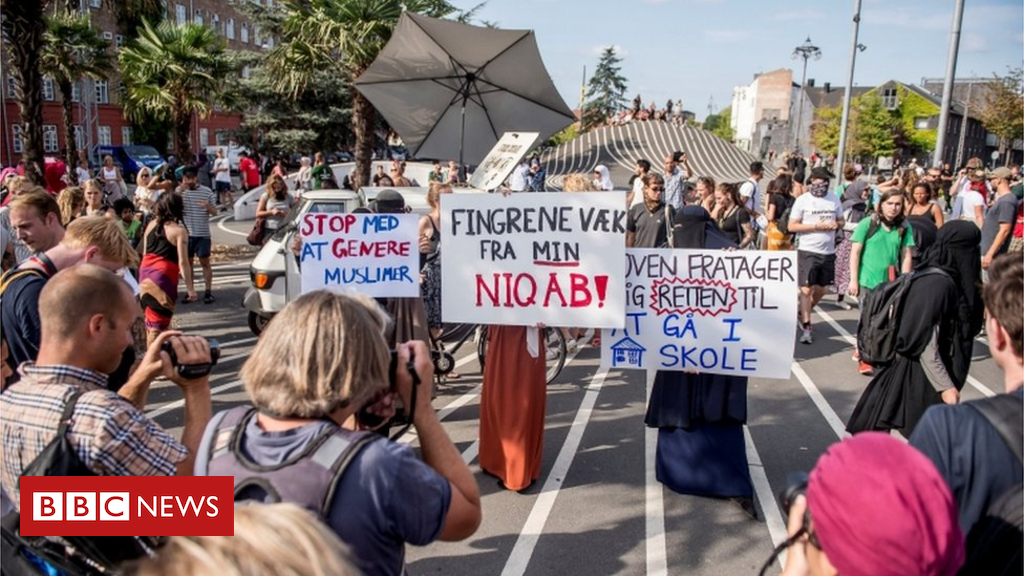 STOP MED
AT GENERE
MUSLIMER
FINGRENE VÆK
FRA MIN
NIQAB!
OVEN FRATAGER
IG RETTEN TIL
AT GÅ I
SKOLE
BBC NEWS